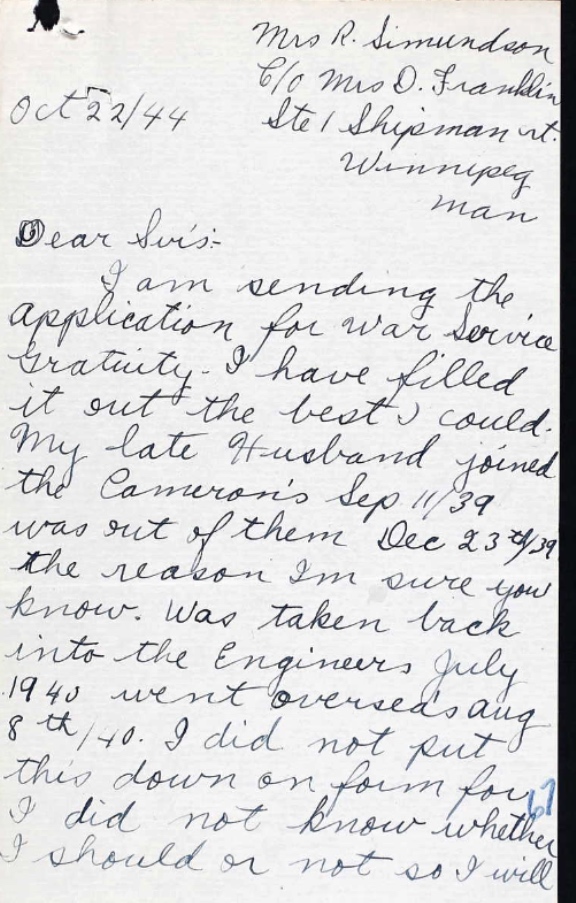 Mrs R. Simundson
C/o Mrs D. Franklin
Oct 22/44
Ste 1 Shipman crt.
Winnipeg
Man
Dear Sirs:-
I am sending the
application for War Service
Gratuity. I have filled
it out the best I could.
My late Husband joined
the Cameron's Sep 11/39
was out of them Dec 23th/39
the reason I'm sure you
know. Was taken back
into the Engineers July
1940 went overseas aug
8th/40. I did not put
this down on form for
67
I did not know whether
I should or not so I will